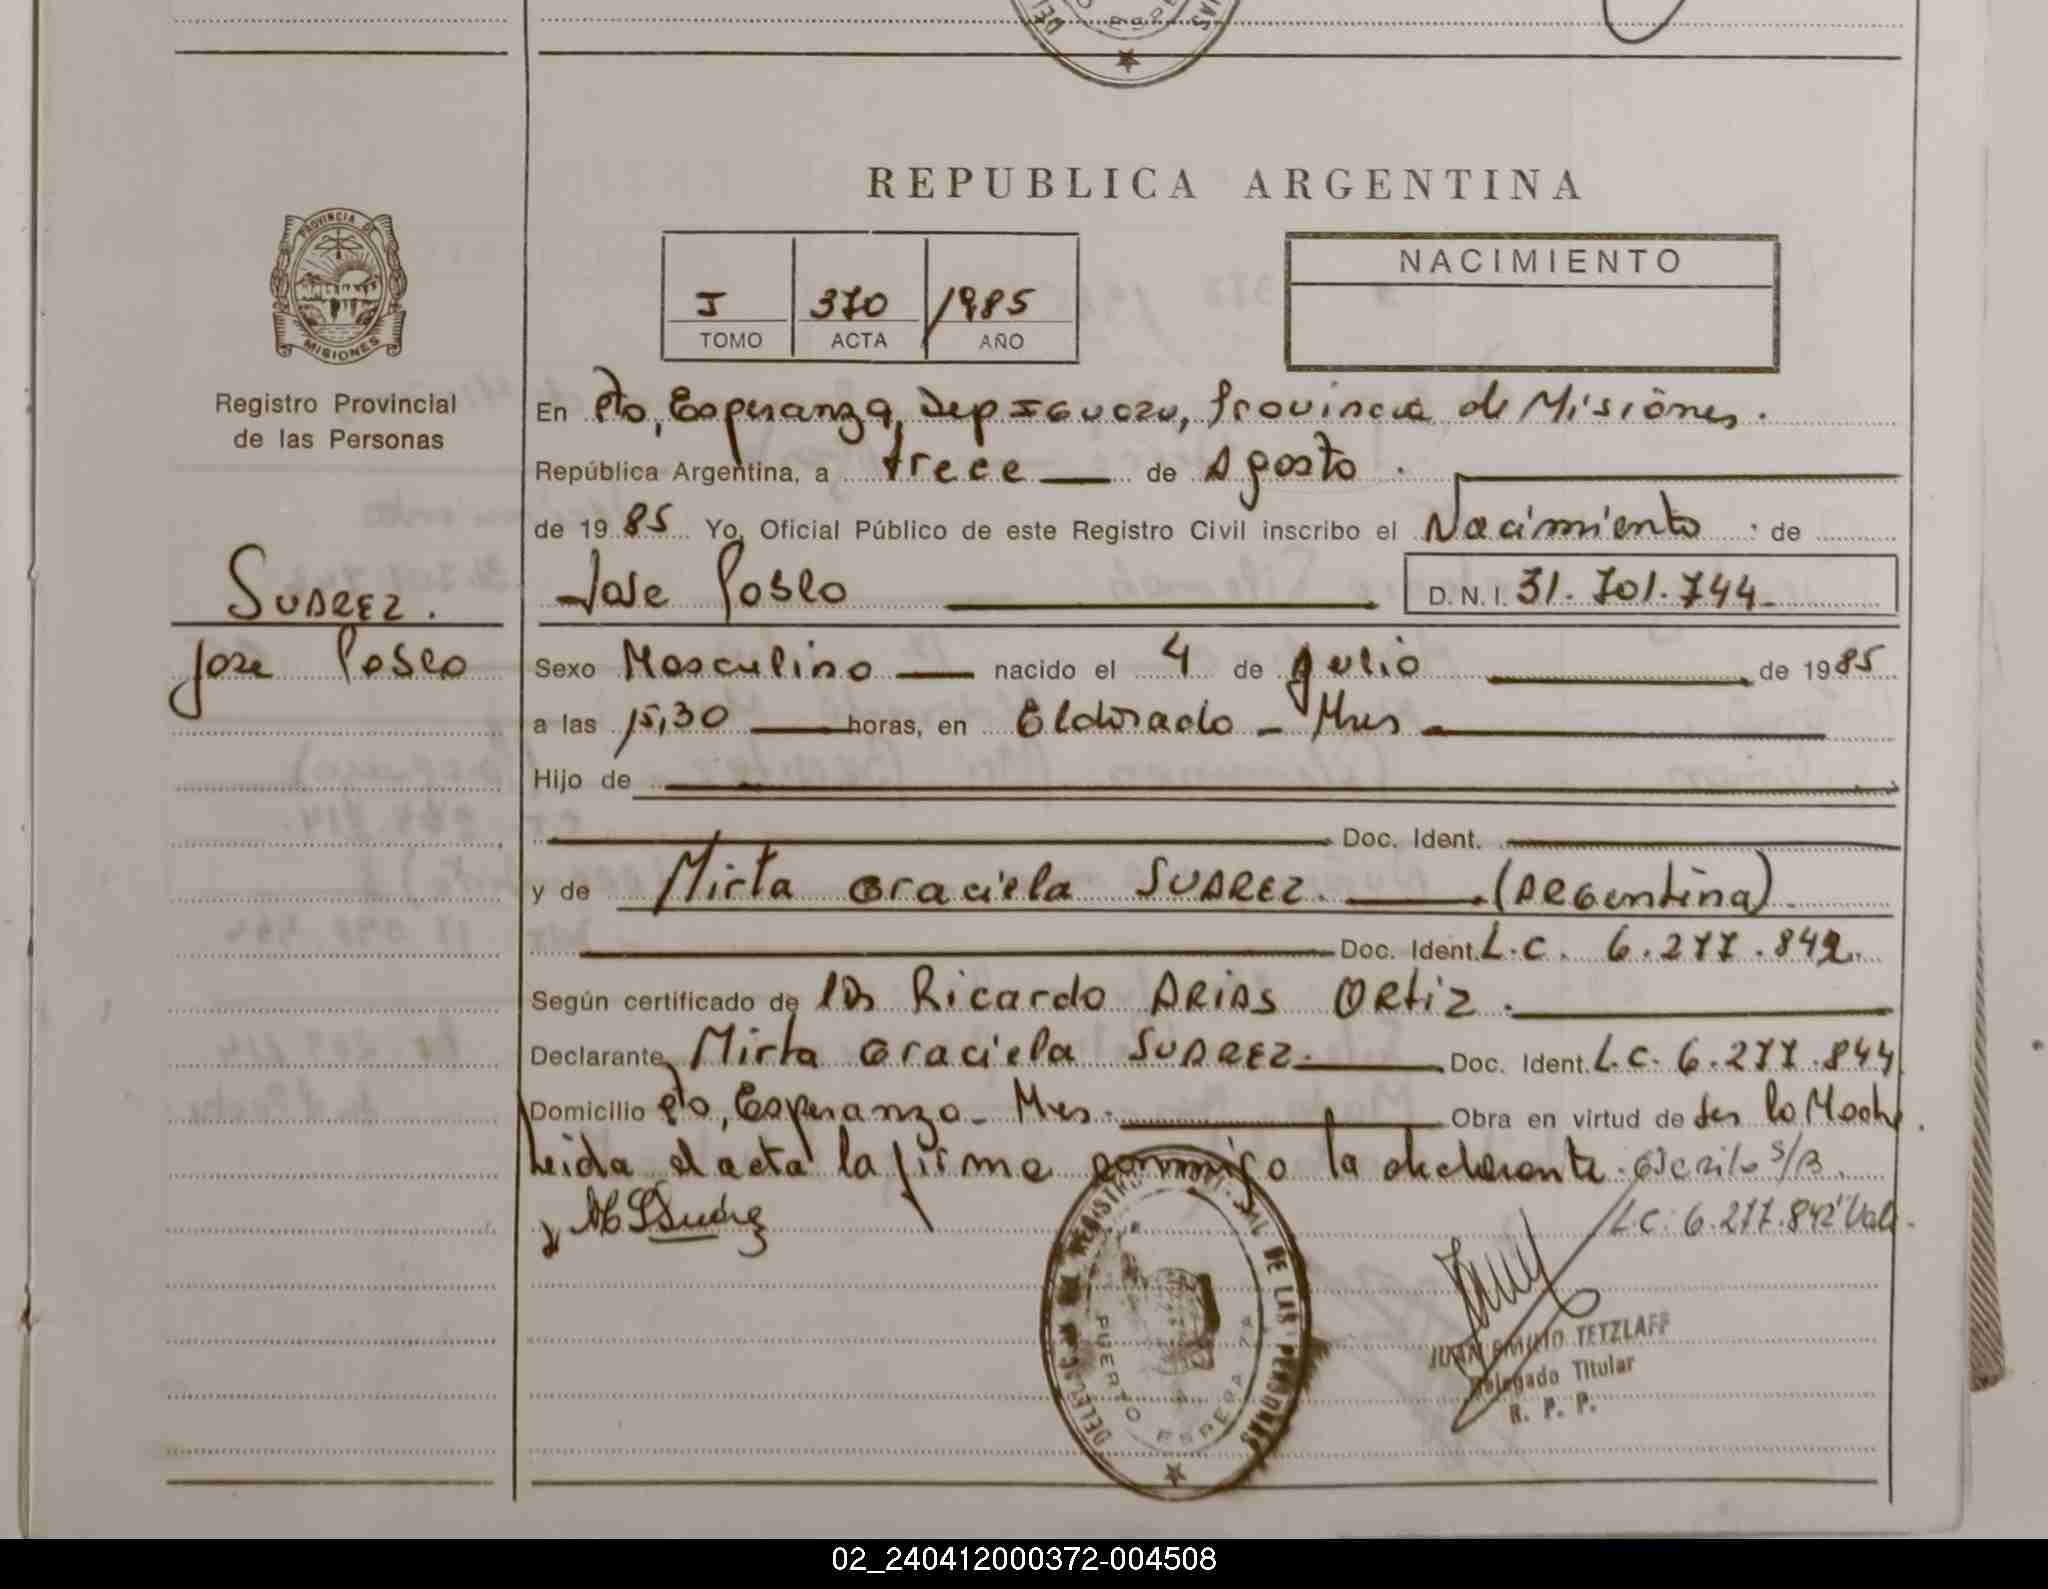 REPUBLICA ARGENTINA
PROVINCIA DE
MISIONES
Registro Provincial
de las Personas
I 370 1985
TOMO ACTA AÑO
NACIMIENTO
En Pto, Esperanza, Dep Iguazu, Provincia de Misiones.
República Argentina, a trece de Agosto.
de 1985 Yo, Oficial Público de este Registro Civil inscribo el Nacimiento : de
SUAREZ.
Jose Pablo
Jose Pablo D.N.I. 31.701.744
Sexo Masculino nacido el 4 de Julio de 1985
a las 15,30 horas, en Eldorado - Mnes
Hijo de
Doc. Ident.
y de Mirta Graciela SUAREZ. (Argentina).
Doc. Ident. L.C. 6.277.842.
Según certificado de Ricardo ARIAS ORtiz.
Declarante Mirta Graciela SUAREZ. Doc. Ident. L.C. 6.277.844
Domicilio Pto, Esperanza - Mnes. Obra en virtud de ser la Madre.
Leida el acta la firma conmigo la declarante. Escrito S/B.
L.C. 6.277.842 Vale.
REGISTRO PROVINCIAL DE LAS PERSONAS
PUERTO ESPERANZA
JUAN EMILIO TETZLAFF
Delegado Titular
R. P. P.
02_240412000372-004508